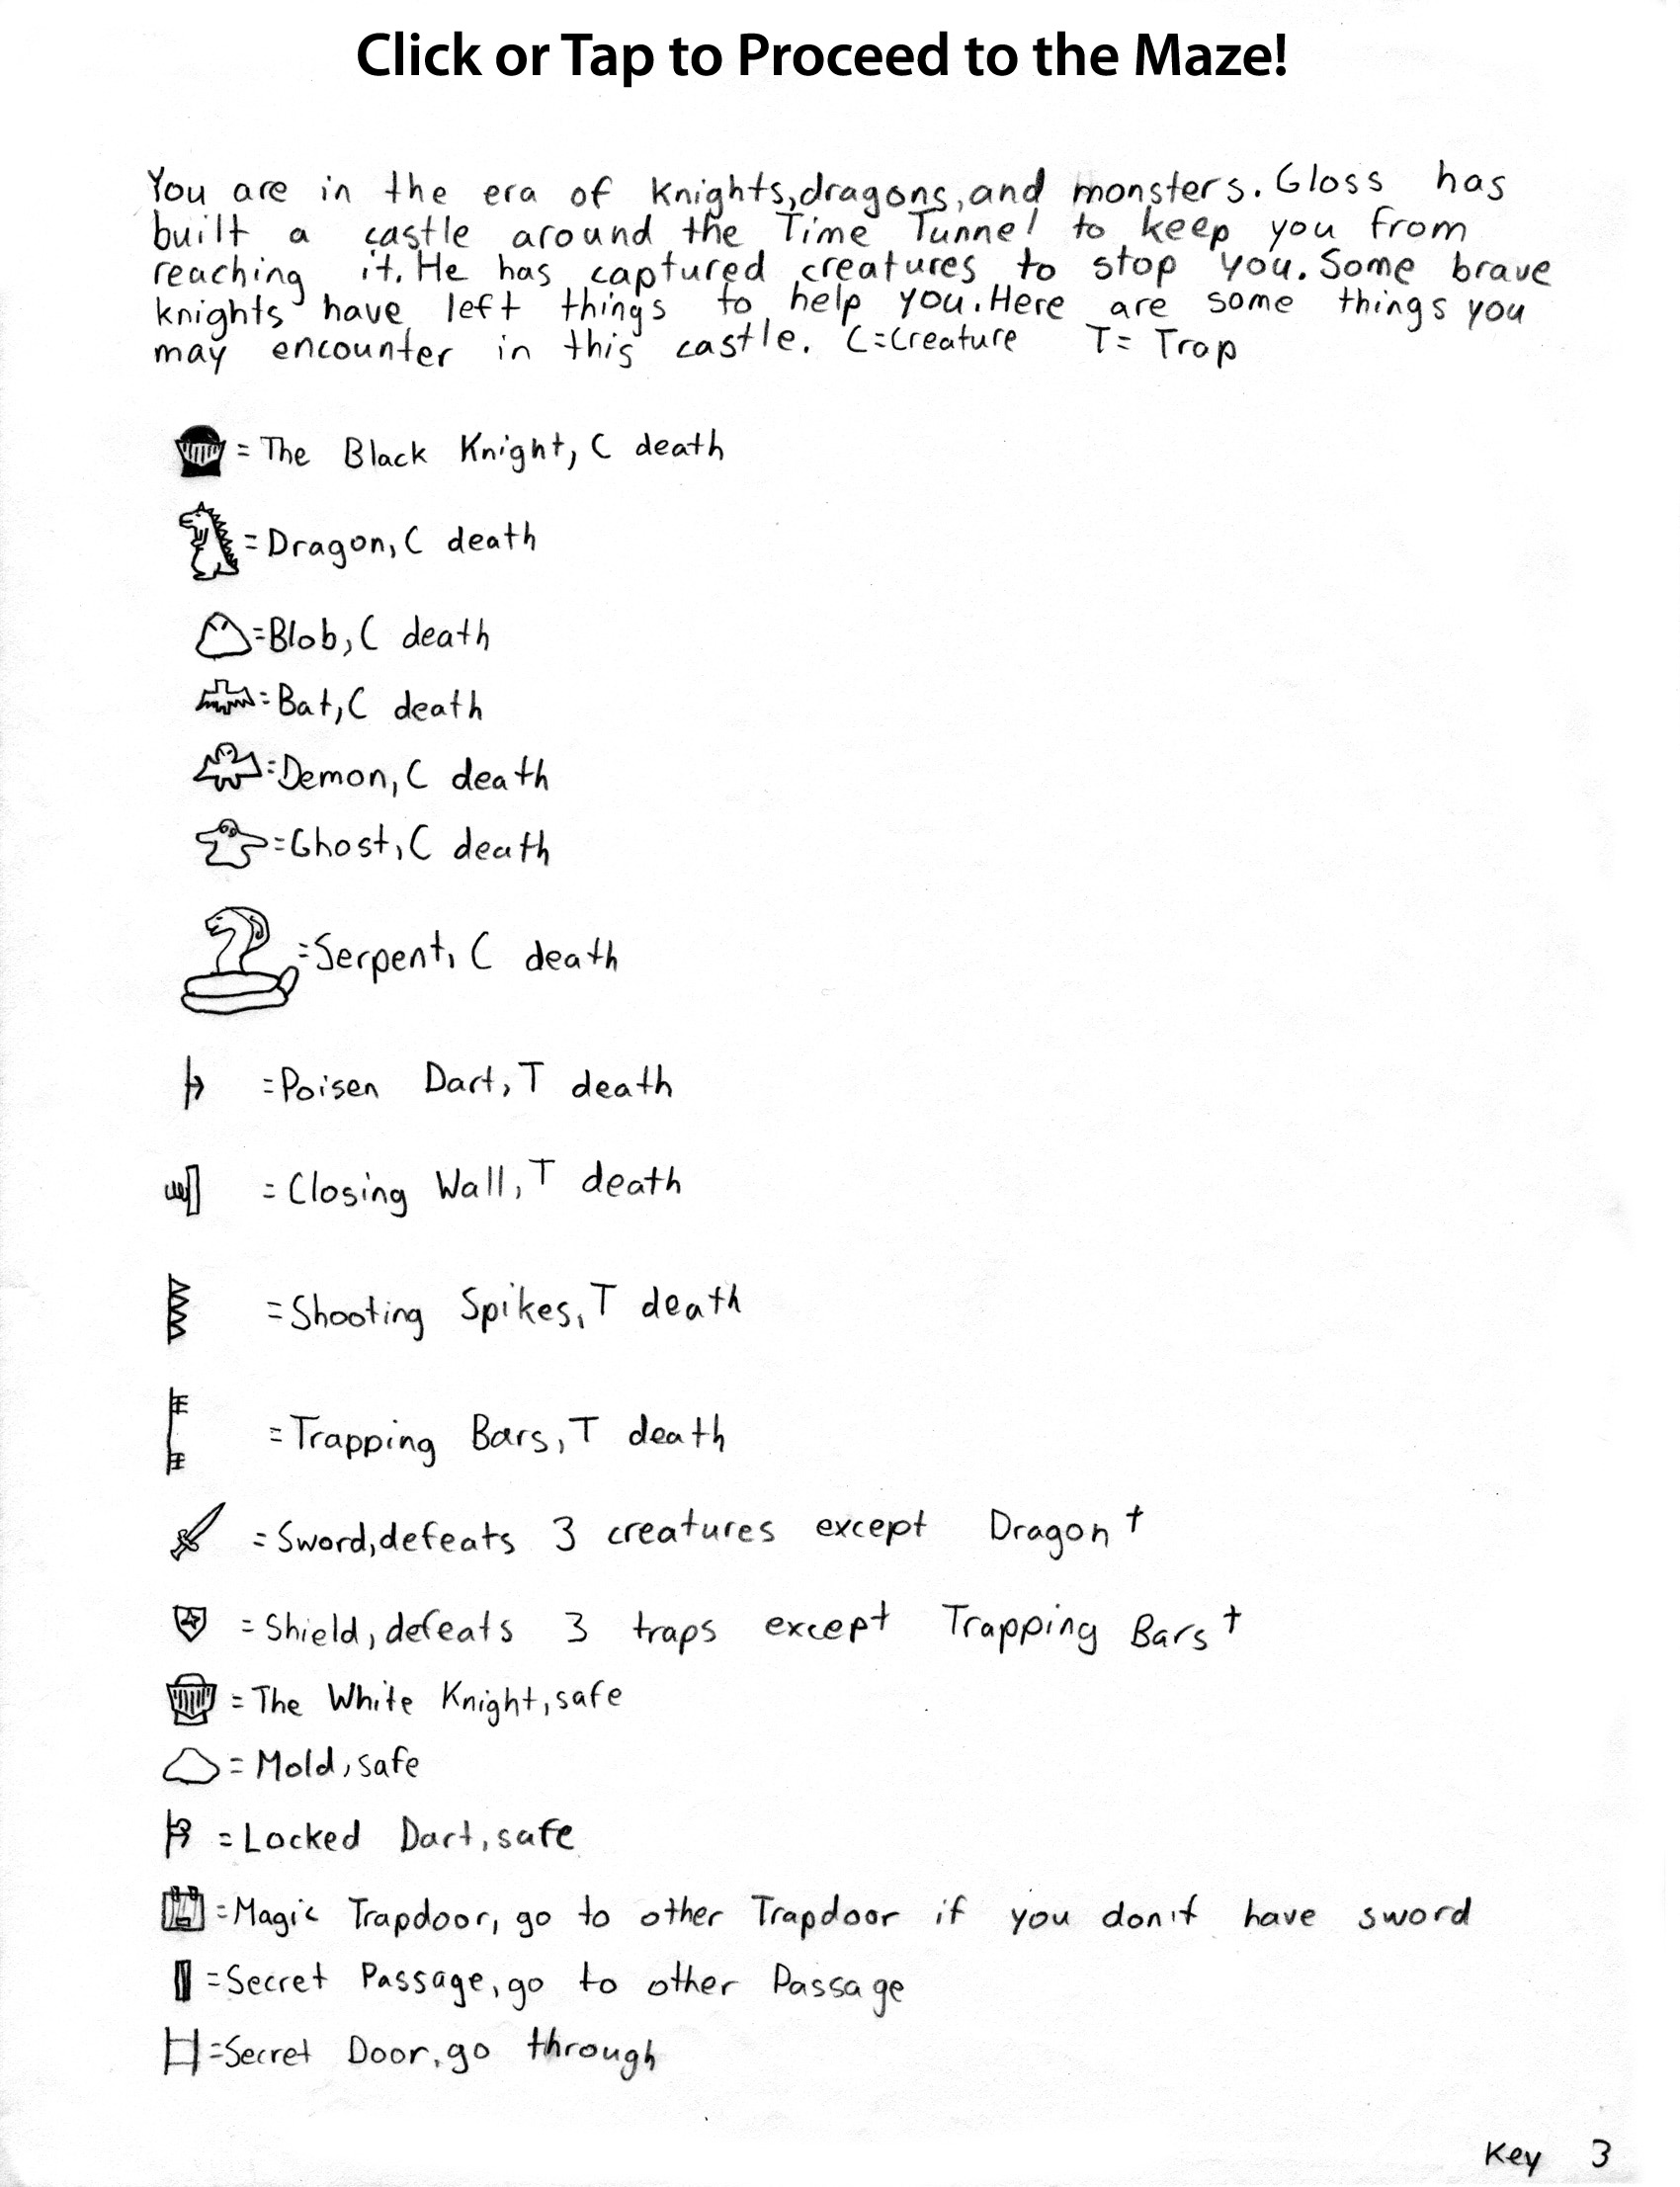 Click or Tap to Proceed to the Maze!
You are in the era of knights, dragons, and monsters. Gloss has
built a castle around the Time Tunnel to keep you from
reaching it. He has captured creatures to stop you. Some brave
knights have left things to help you. Here are some things you
may encounter in this castle. C=Creature T= Trap
= The Black Knight, C death
= Dragon, C death
= Blob, C death
= Bat, C death
= Demon, C death
= Ghost, C death
= Serpent, C death
= Poisen Dart, T death
= Closing Wall, T death
= Shooting Spikes, T death
= Trapping Bars, T death
= Sword, defeats 3 creatures except Dragon †
= Shield, defeats 3 traps except Trapping Bars †
= The White Knight, safe
= Mold, safe
= Locked Dart, safe
= Magic Trapdoor, go to other Trapdoor if you don't have sword
= Secret Passage, go to other Passage
= Secret Door, go through
Key 3